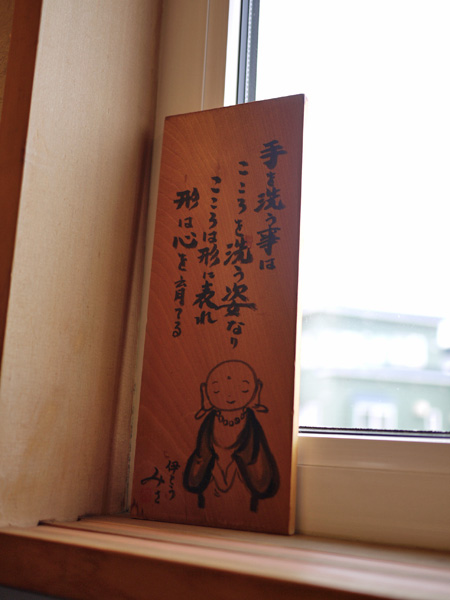 手を洗う事は
こころを洗う姿なり
こころは形に表れ
形は心を育てる
伊とう
みさ